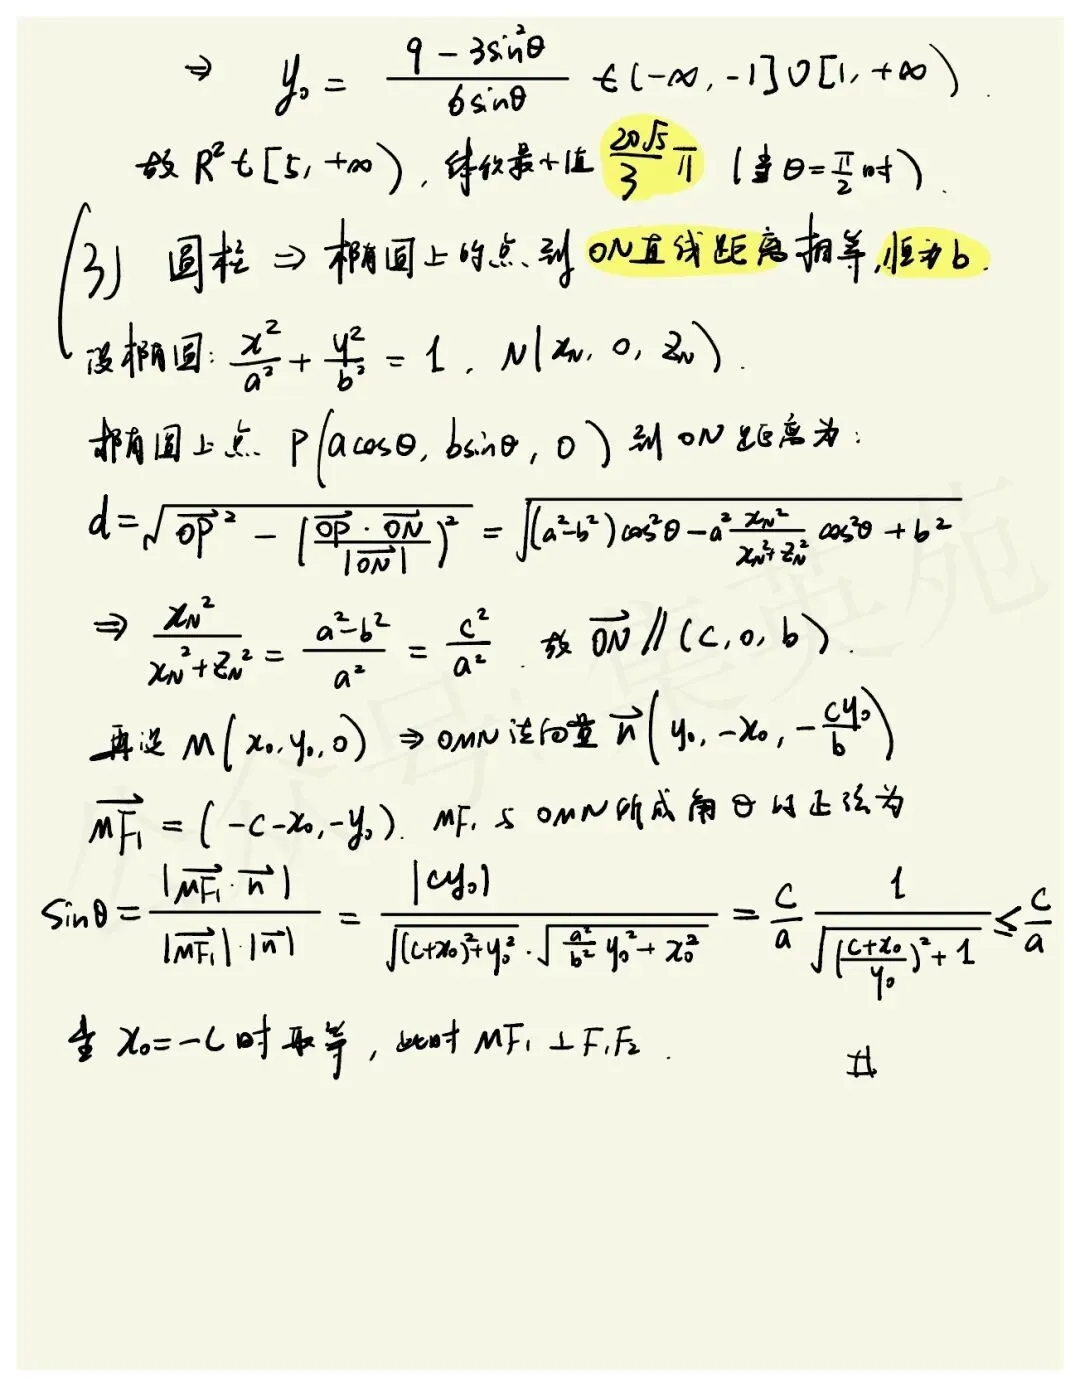 ⇒ y₀ = (9 - 3sin²θ)/(6sinθ) ∈ (-∞, -1] ∪ [1, +∞).
故 R² ∈ [5, +∞), 体积最小值 (20√5/3)π (当 θ = π/2 时).
(3) 圆柱 ⇒ 椭圆上的点到 ON 直线距离相等, 恒为 b.
设椭圆: x²/a² + y²/b² = 1, N(x_N, 0, z_N).
椭圆上点 P(acosθ, bsinθ, 0) 到 ON 距离为:
d = √(OP⃗² - (OP⃗·ON⃗/|ON⃗|)²) = √((a²-b²)cos²θ - a² x_N²/(x_N²+z_N²) cos²θ + b²)
⇒ x_N²/(x_N²+z_N²) = (a²-b²)/a² = c²/a². 故 ON⃗ // (c, 0, b).
再设 M(x₀, y₀, 0) ⇒ OMN 法向量 n⃗(y₀, -x₀, -cy₀/b)
MF₁⃗ = (-c-x₀, -y₀). MF₁ 与 OMN 所成角 θ 的正弦为
sinθ = |MF₁⃗·n⃗|/(|MF₁⃗|·|n⃗|) = |cy₀|/(√((c+x₀)²+y₀²)·√(a²/b² y₀²+x₀²)) = c/a · 1/√(((c+x₀)/y₀)²+1) ≤ c/a
当 x₀ = -c 时取等, 此时 MF₁ ⊥ F₁F₂.
#
公众号·集英苑